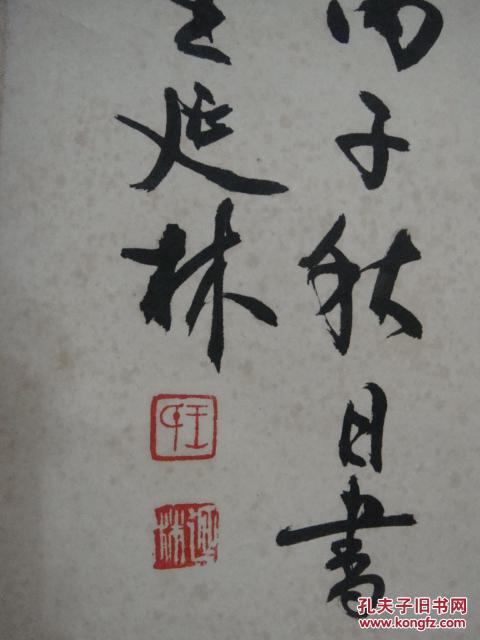 丙子秋日书
王延林
孔夫子旧书网
www.kongfz.com